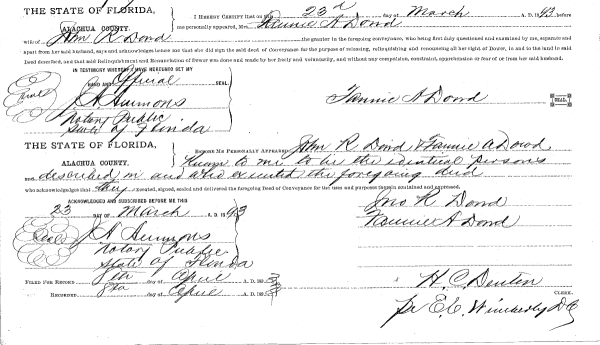 THE STATE OF FLORIDA, I HEREBY CERTIFY that on this 23rd day of March A. D. 1893, before
ALACHUA COUNTY. me personally appeared, Mrs. Fannie A. Dowd
wife of John R Dowd the grantor in the foregoing conveyance, who being first duly questioned and examined by me, separate and
apart from her said husband, says and acknowledges before me that she did sign the said deed of Conveyance for the purpose of releasing, relinquishing and renouncing all her right of Dower, in and to the land in said
Deed described, and that said Relinquishment and Renunciation of Dower was done and made by her freely and voluntarily, and without any compulsion, constraint, apprehension or fear of or from her said husband.
IN TESTIMONY WHEREOF I HAVE HEREUNTO SET MY
HAND AND Official SEAL
J. A. Ammons
Notary Public
State of Florida
Fannie A Dowd SEAL.
THE STATE OF FLORIDA, BEFORE ME PERSONALLY APPEARED John R Dowd & Fannie A Dowd
ALACHUA COUNTY. Known to me to be the identical persons
and described in and who executed the foregoing deed
who acknowledges that they executed, signed, sealed and delivered the foregoing Deed of Conveyance for the uses and purposes therein contained and expressed.
ACKNOWLEDGED AND SUBSCRIBED BEFORE ME THIS
23 DAY OF March A. D. 1893
Jno R Dowd
Fannie A Dowd
Seal J. A. Ammons
Notary Public
State of Florida
FILED FOR RECORD day of April A. D. 189
RECORDED day of April A. D. 189
H. C. Denton
CLERK.
pr E. C. Wimberly D C